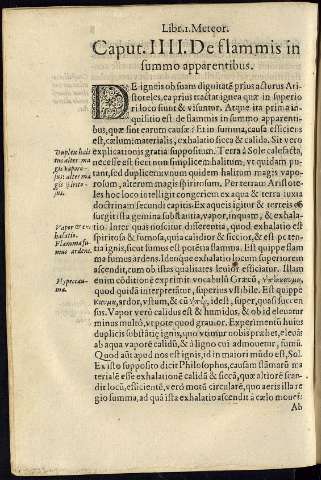 Libr. 1. Meteor.
Caput. IIII. De flammis in
summo apparentibus.
DE ignis ob suam dignitatē prius acturus Ari
stoteles, ea prius tractat ignea quæ in superio
ri loco sunt & visuntur. Atque ita prima in
quisitio est de flammis in summo apparenti-
bus, quæ sint earum causæ? Et in summa, causa efficiens
est, cælum: materialis, exhalatio sicca & calida. Sit vero
explicationis gratia suppositum. Terra à Sole calefacta,
necesse est fieri non simplicem halitum, vt quidam pu-
tant, sed duplicem: vnum quidem halitum magis vapo-
rosum, alterum magis spiritosum. Per terram Aristote-
les hoc loco intelligit congeriem ex aqua & terra iuxta
doctrinam secundi capitis. Ex aqueis igitur & terreis
surgit ista gemina substantia, vapor, inquam, & exhala-
tio. Inter quas noscitur differentia, quod exhalatio est
spiritosa & fumosa, quia calidior & siccior, & est poten-
tia ignis, sicut fumus est potētia flamma. Est quippe flam
ma fumus ardens. Ideoque exhalatio locum superiorem
ascendit, cum ob istas qualitates leuior efficiatur. Illam
enim cōditionē exprimit vocabulū Græcū,
quod quidā interpretātur, superius vstibile. Est quippe
ardor, vstum, & cū idest, super, quasi succen
sus. Vapor verò calidus est & humidus, & ob id eleuatur
minus multò, vtpote quod grauior. Experimentū huius
duplicis substātiæ ignis, quo vtimur nobis præbet, eleuās
ab aqua vaporē calidū, à ligno cui admouetur, fumū.
Quod aūt apud nos est ignis, id in maiori mūdo est, Sol.
Ex isto supposito dicit Philosophus, causam flāmarū ma
terialē esse exhalationē calidā & siccā, quæ altiorē scan-
dit locū, efficientē, verò motū circularē, quo aeris illa re
gio summa, ad quā ista exhalatio ascendit à cælo mouet:
Ab
Duplex hali
tus alter ma
gis vaporo-
sus alter ma
gis spirito-
sus.
Vapor & ex
halatio.
Flamma fu-
mus ardens.
Hypeccau-
ma.